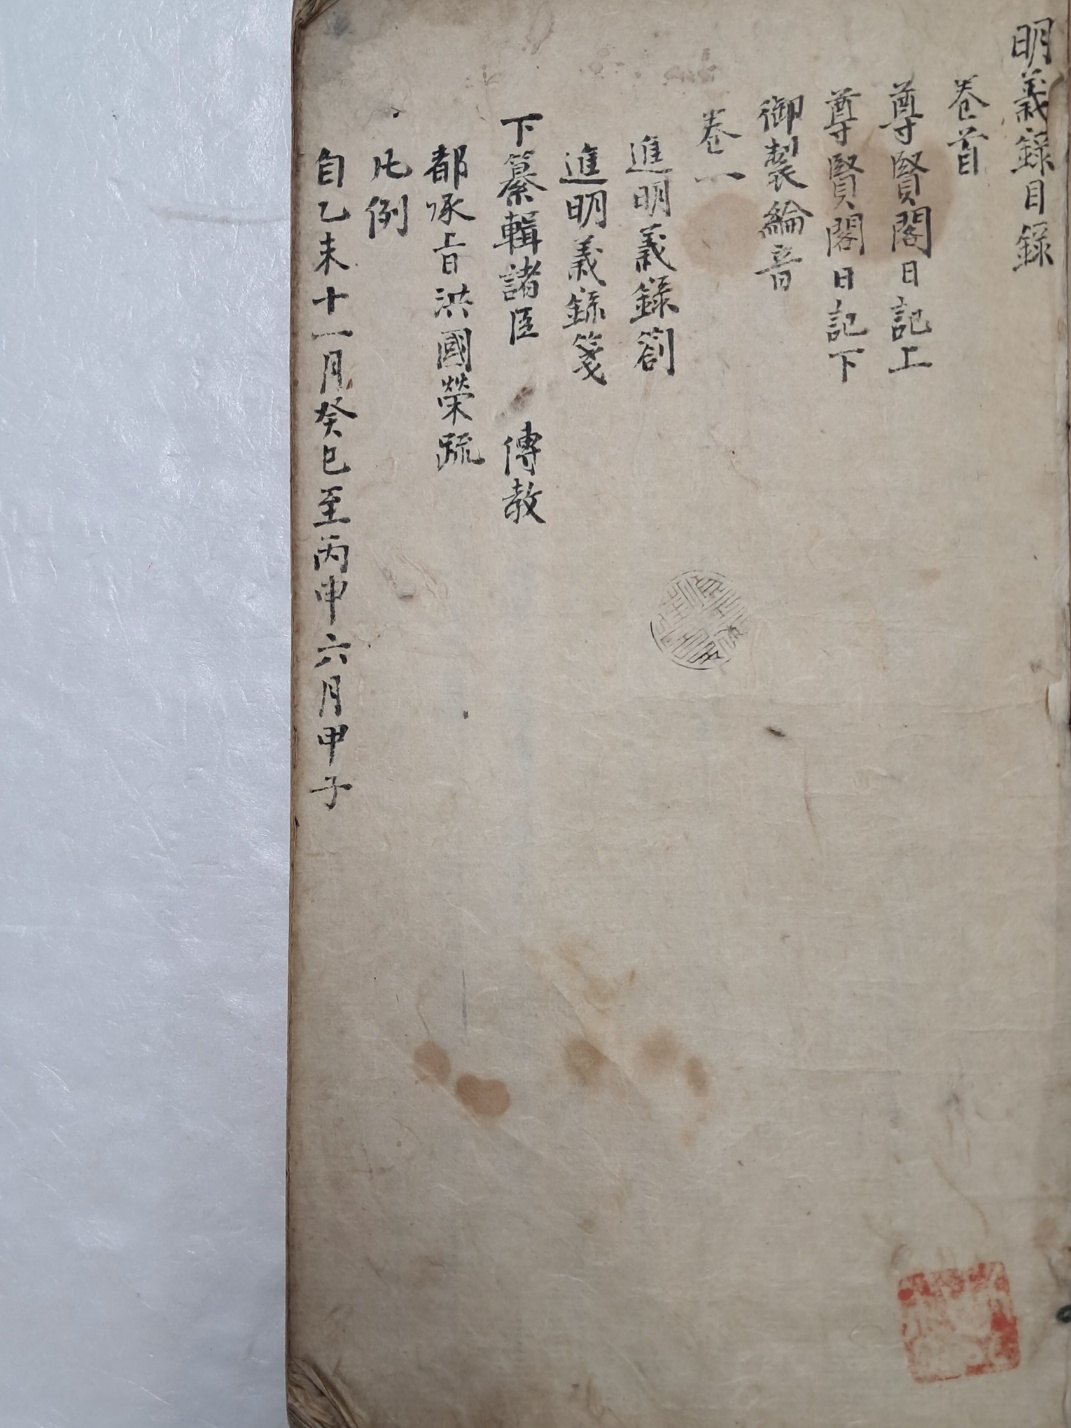 明義錄目錄
卷首
尊賢閣日記上
尊賢閣日記下
御製綸音
卷一
進明義錄劄
進明義錄箋
下纂輯諸臣 傳教
都承旨洪國榮疏
凡例
自乙未十一月癸巳至丙申六月甲子